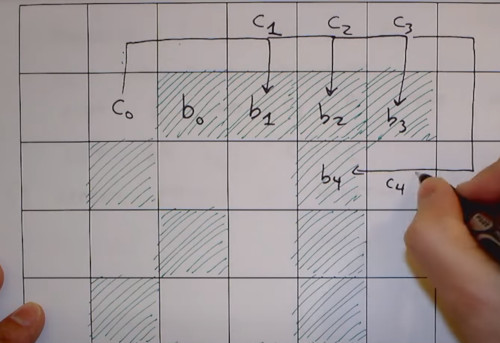 c₁ c₂ c₃
c₀ b₀ b₁ b₂ b₃
b₄ c₄